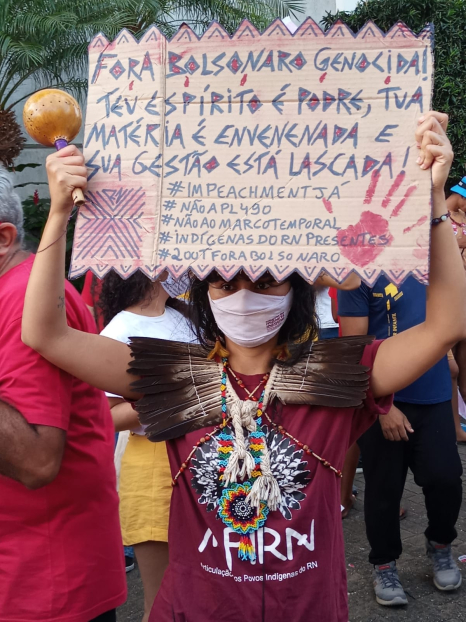 FORA BOLSONARO GENOCIDA!
TEU ESPÍRITO É PODRE, TUA
MATÉRIA É ENVENENADA E
SUA GESTÃO ESTÁ LASCADA!
#IMPEACHMENTJÁ
#NÃOAPL490
#NÃOAOMARCOTEMPORAL
#INDÍGENASDORNPRESENTES
#200TFORABOLSONARO
APIRN
Articulação dos Povos Indígenas do RN